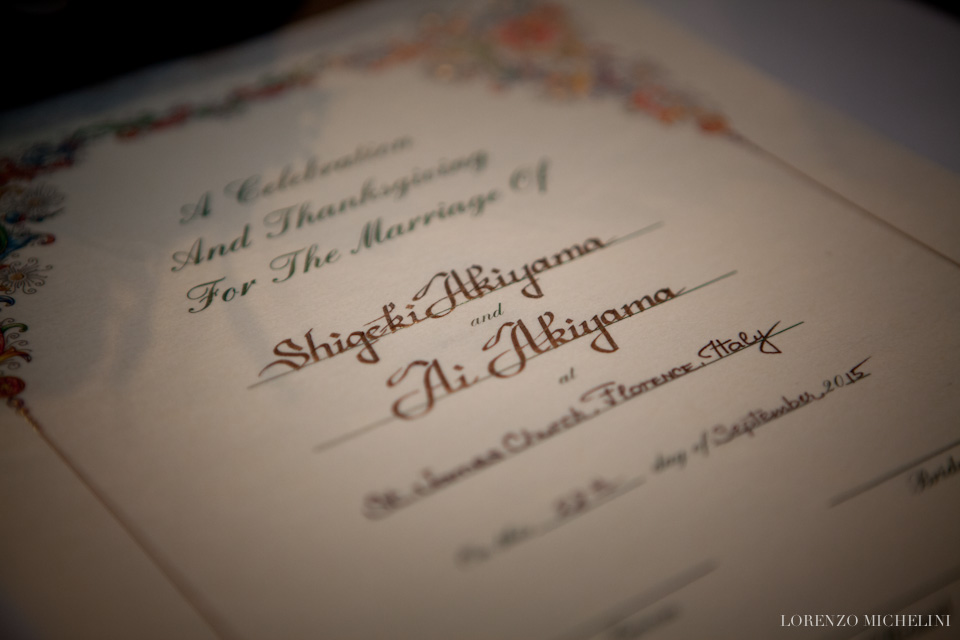 A Celebration
And Thanksgiving
For The Marriage Of
Shigeki Akiyama
and
Ai Akiyama
at
St. James Church, Florence, Italy
day of September, 2015
LORENZO MICHELINI